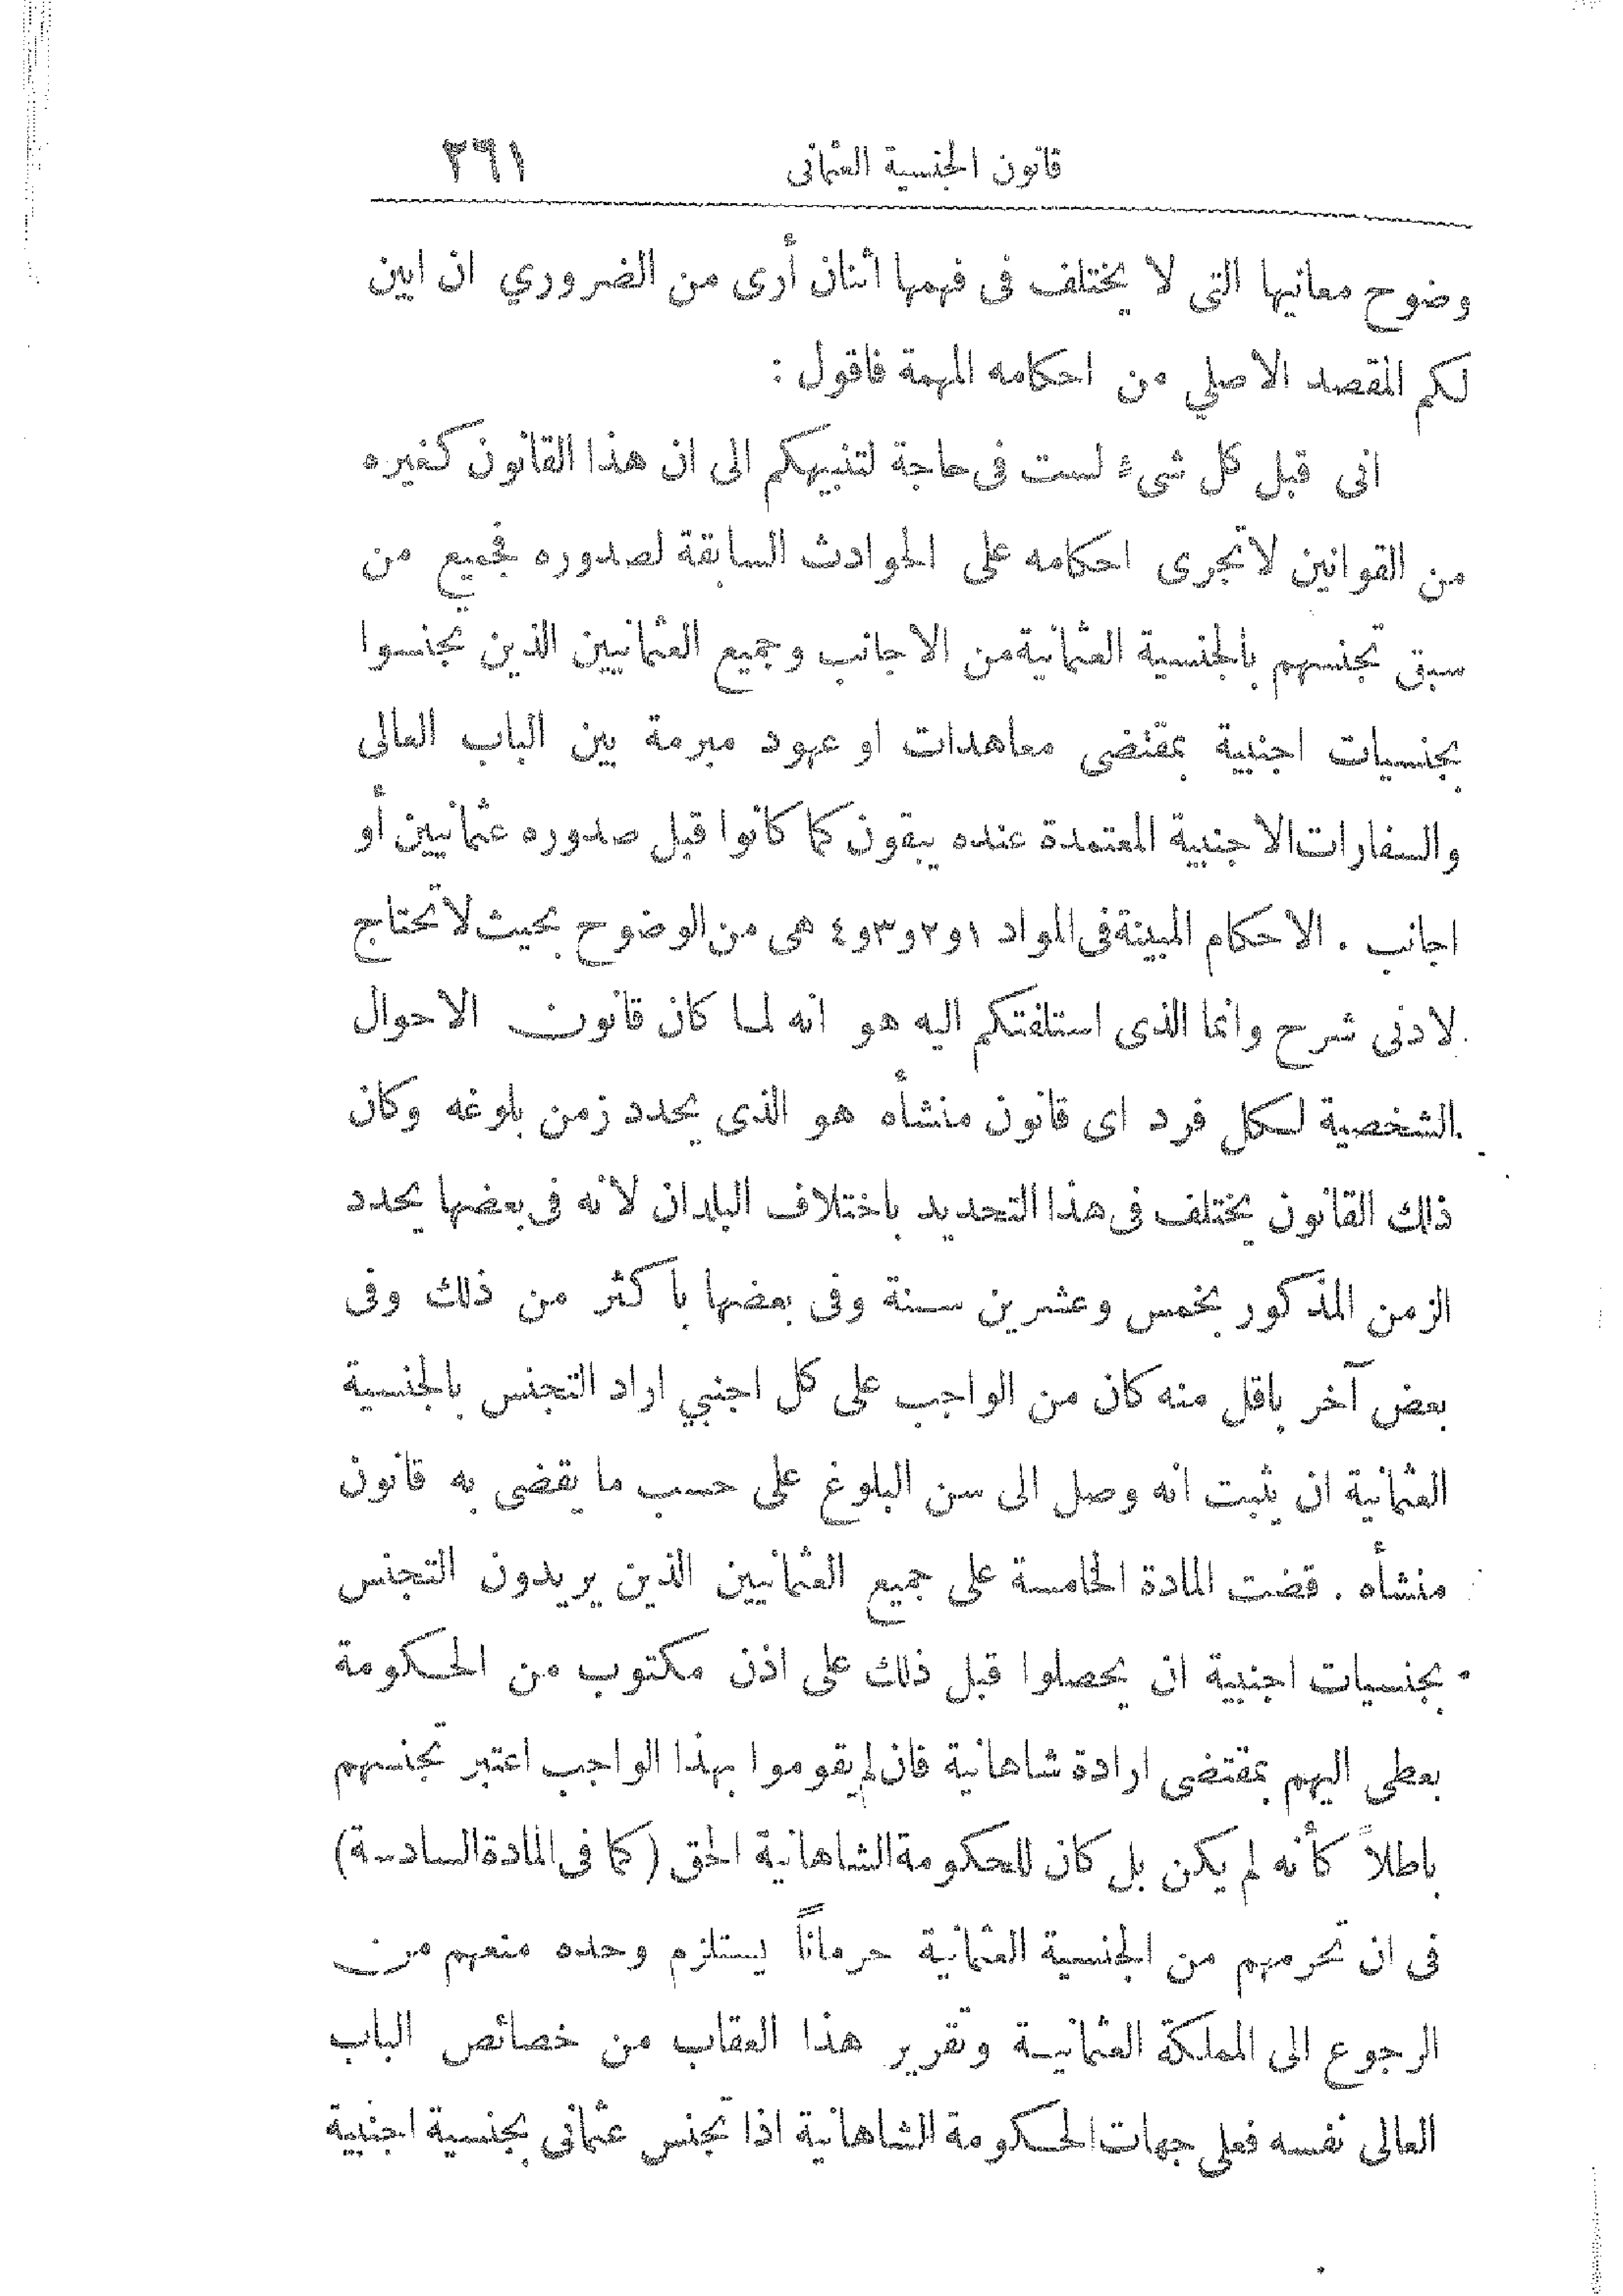 قانون الجنسية العثمانى ٢٦١
وضوح معانيها التى لا يختلف فى فهمها اثنان أرى من الضروري ان ابين
لكم المقصد الاصلي من احكامه المهمة فاقول :
انى قبل كل شىء لست فى حاجة لتنبيهكم الى ان هذا القانون كغيره
من القوانين لا تجرى احكامه على الحوادث السابقة لصدوره فجميع من
سبق تجنسهم بالجنسية العثمانية من الاجانب وجميع العثمانيين الذين تجنسوا
بجنسيات اجنبية بمقتضى معاهدات او عهود مبرمة بين الباب العالى
والسفارات الاجنبية المعتمدة عنده يبقون كما كانوا قبل صدوره عثمانيين أو
اجانب . الاحكام المبينة فى المواد ١و٢و٣و٤ هى من الوضوح بحيث لا تحتاج
لادنى شرح وانما الذى استلفتكم اليه هو انه لما كان قانون الاحوال
الشخصية لكل فرد اى قانون منشأه هو الذى يحدد زمن بلوغه وكان
ذلك القانون يختلف فى هذا التحديد باختلاف البلدان لانه فى بعضها يحدد
الزمن المذكور بخمس وعشرين سنة وفى بعضها باكثر من ذلك وفى
بعض آخر باقل منه كان من الواجب على كل اجنبي اراد التجنس بالجنسية
العثمانية ان يثبت انه وصل الى سن البلوغ على حسب ما يقضى به قانون
منشأه . قضت المادة الخامسة على جميع العثمانيين الذين يريدون التجنس
بجنسيات اجنبية ان يحصلوا قبل ذلك على اذن مكتوب من الحكومة
يعطى اليهم بمقتضى ارادة شاهانية فان لم يقوموا بهذا الواجب اعتبر تجنسهم
باطلاً كأنه لم يكن بل كان للحكومة الشاهانية الحق (كما فى المادة السادسة)
فى ان تحرمهم من الجنسية العثمانية حرماناً يستلزم وحده منعهم من
الرجوع الى المملكة العثمانية وتقرير هذا العقاب من خصائص الباب
العالى نفسه فعلى جهات الحكومة الشاهانية اذا تجنس عثمانى بجنسية اجنبية